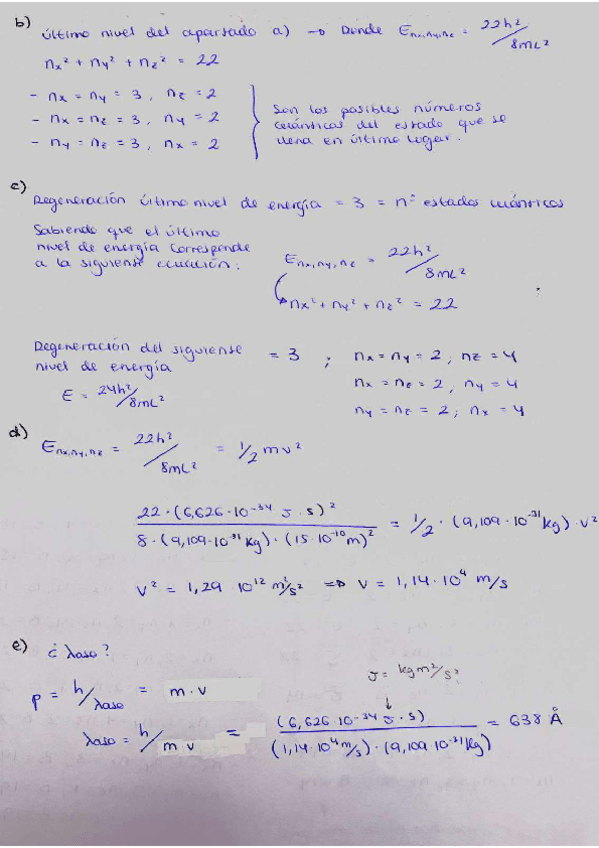 b) Último nivel del apartado a) → Donde Enx,ny,nz = 22h²/8mL²
nx² + ny² + nz² = 22
- nx = ny = 3, nz = 2
- nx = nz = 3, ny = 2
- ny = nz = 3, nx = 2
Son los posibles números
cuánticos del estado que se
llena en último lugar.
c)
Degeneración último nivel de energía = 3 = nº estados cuánticos
Sabiendo que el último
nivel de energía corresponde
a la siguiente ecuación:
Enx,ny,nz = 22h²/8mL²
nx² + ny² + nz² = 22
Degeneración del siguiente
nivel de energía
= 3 ; nx = ny = 2, nz = 4
nx = nz = 2, ny = 4
ny = nz = 2; nx = 4
E = 24h²/8mL²
d) Enx,ny,nz = 22h²/8mL² = 1/2 mv²
22·(6,626·10⁻³⁴ J·s)² / 8·(9,109·10⁻³¹ kg)·(15·10⁻¹⁰ m)² = 1/2·(9,109·10⁻³¹ kg)·v²
v² = 1,29·10¹² m²/s² ⇒ v = 1,14·10⁴ m/s
e) ¿λaso?
J = kgm²/s²
p = h/λaso = m·v
λaso = h/mv = (6,626·10⁻³⁴ J·s) / (1,14·10⁴ m/s)·(9,109·10⁻³¹ kg) = 638 Å